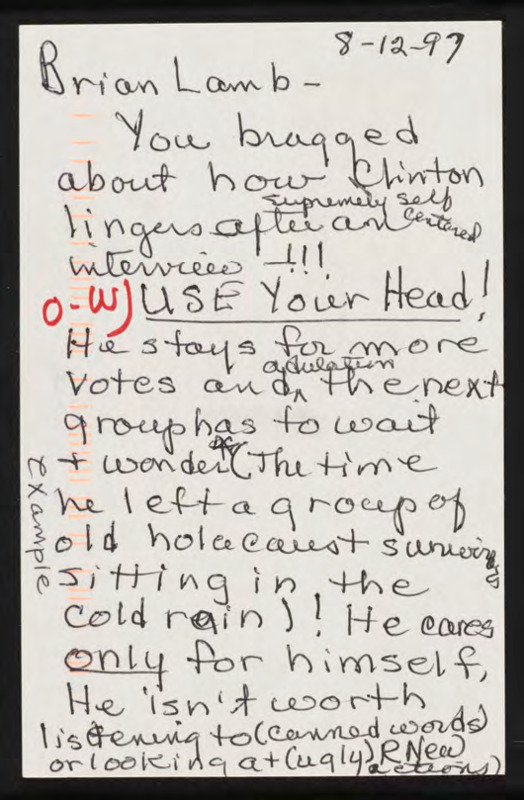 8-12-97
Brian Lamb-
You bragged
about how Clinton
supremely self
lingers after an centered
interview !!!
O-W) USE Your Head!
He stays for more
adulation
votes and ^ the next
group has to wait
+ wonder * (The time
example
he left a group of
old holocaust surviving
sitting in the
cold rain)! He cares
only for himself,
He isn't worth
listening to (canned words)
or looking at (ugly) R New
actions)